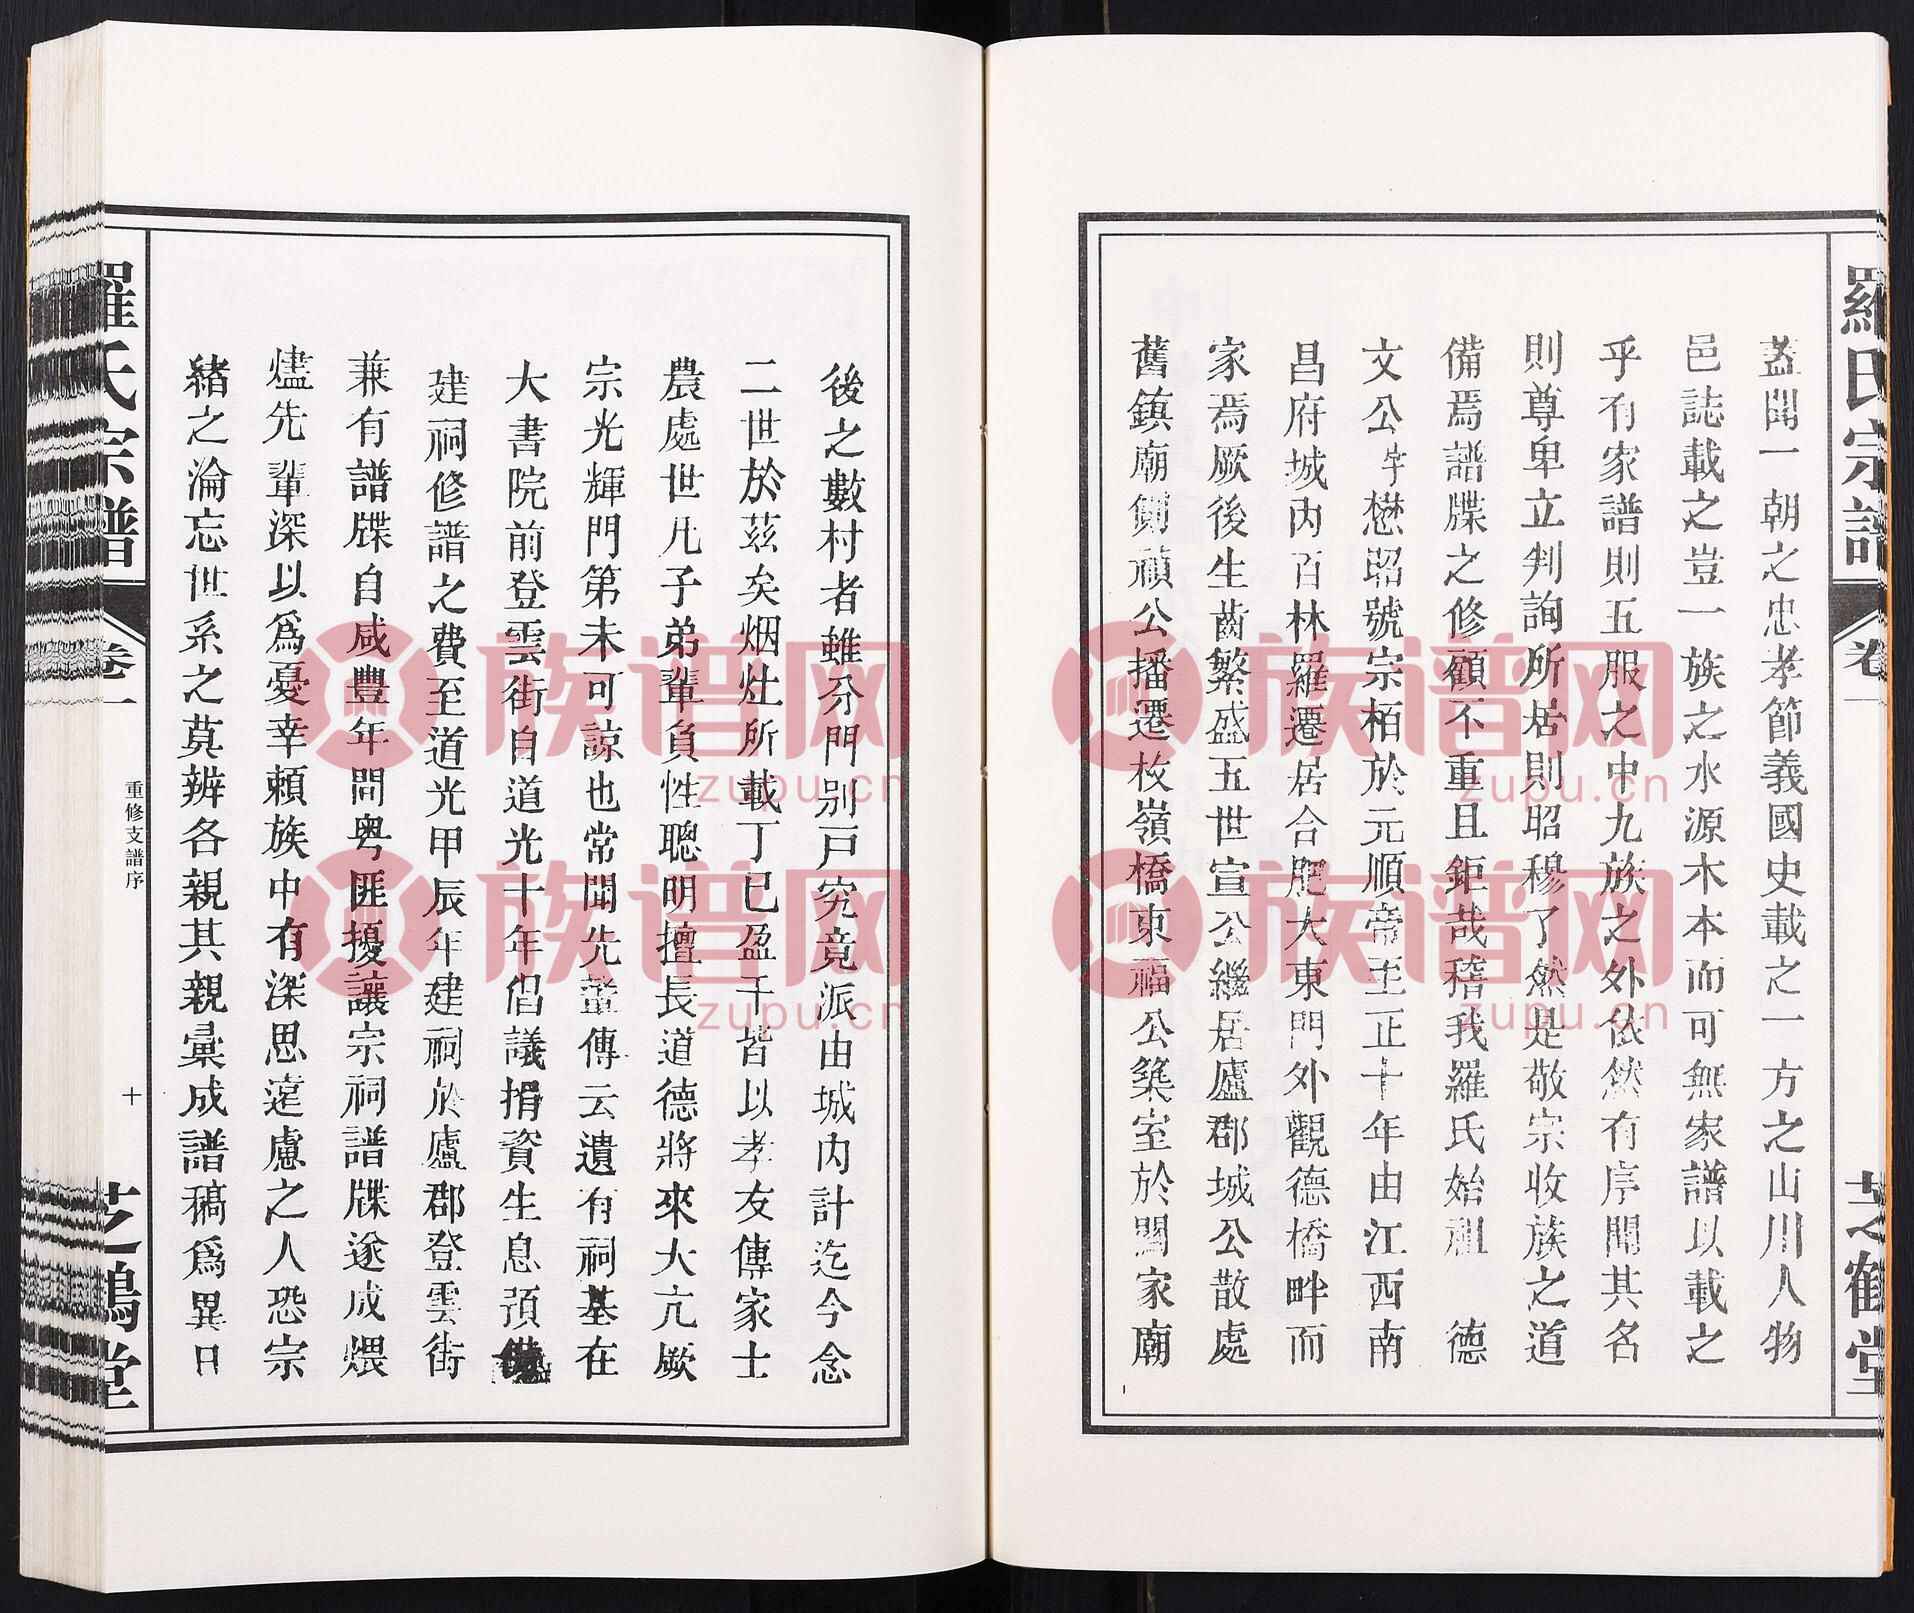 羅氏宗譜 卷一 芝鶴堂
蓋聞一朝之忠孝節義國史載之一方之山川人物
邑誌載之豈一族之水源木本而可無家譜以載之
乎有家譜則五服之中九族之外依然有序聞其名
則尊卑立判詢所居則昭穆了然是敬宗收族之道
備焉譜牒之修顧不重且鉅哉稽我羅氏始祖 德
文公字懋昭號宗栢於元順帝至正十年由江西南
昌府城內百林羅遷居合肥大東門外觀德橋畔而
家焉厥後生齒繁盛五世宣公繼居廬郡城公散處
舊鎮廟側禎公播遷枚嶺橋東福公築室於闞家廟
後之數村者雖分門別戶究竟派由城內計迄今念
二世於茲矣烟灶所載丁已盈千皆以孝友傳家士
農處世凡子弟輩負性聰明擅長道德將來大亢厥
宗光輝門第未可諒也常聞先輩傳云遺有祠基在
大書院前登雲街自道光十年倡議捐資生息預備
建祠修譜之費至道光甲辰年建祠於廬郡登雲街
兼有譜牒自咸豐年間粵匪擾讓宗祠譜牒遂成煨
燼先輩深以為憂幸賴族中有深思遠慮之人恐宗
緒之淪忘世系之莫辨各親其親彙成譜稿為異日
羅氏宗譜 卷一 重修支譜序 十 芝鶴堂
族谱网
zupu.cn
族谱网
zupu.cn
族谱网
zupu.cn
族谱网
zupu.cn